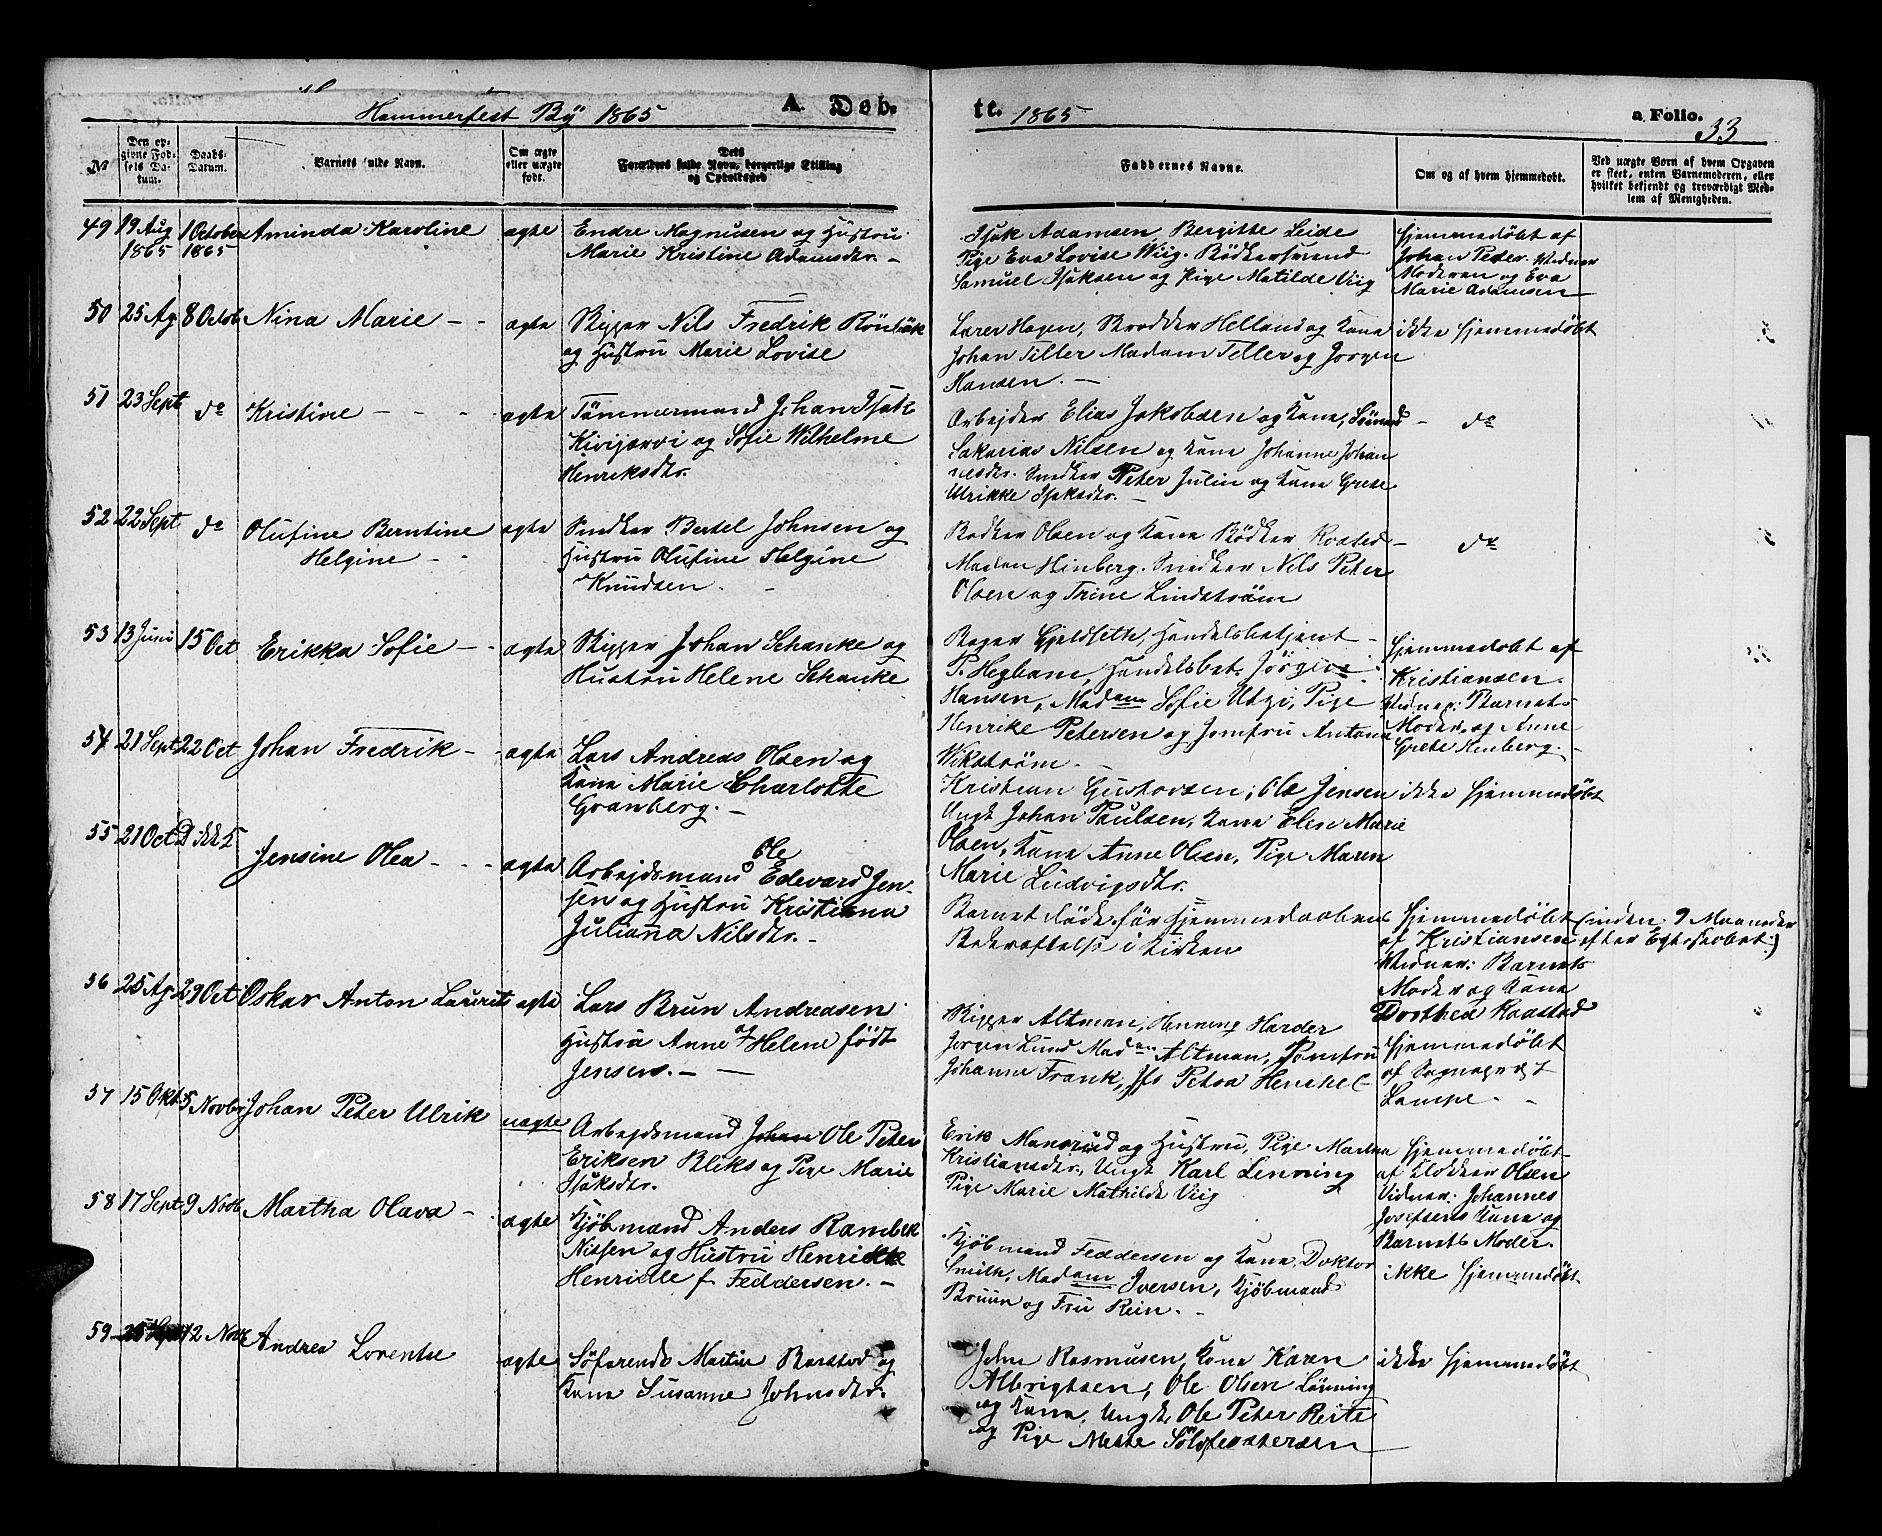 Hammerfest By 1865
A. Døb.
te. 1865
a Folio. 33
№
Den opgivne Fødsels Datum.
Daabs-Datum.
Barnets fulde Navn.
Om ægte eller uægte født.
Dets Forældres fulde Navn, borgerlige Stilling og Opholdssted
Faddernes Navne.
Om og af hvem hjemmedøbt.
Ved uægte Børn af hvem Opgaven er skeet, enten Barnemoderen, eller hvilket bekjendt og troværdigt Medlem af Menigheden.
49 19 Aug 1865 1 October 1865 Aminda Karoline ægte
Endre Magnusen og Hustru
Marie Kristine Adamsdtr. -
Isak Adamsen, Bergitte Leide
Pige Eva Lovise Wiig. Bödkersvend
Samuel Isaksen og Pige Matilde Viig
hjemmedöbt af
Johan Peder. Vidner
Moderen og Eva
Marie Adamsen
50 25 Ag 8 Octob Nina Marie - - ægte
Skipper Nils Fredrik Rönbäk
og Hustru Marie Lovise
Lærer Hagen, Skrædder Helland og Kone
Johan Tiller Madam Teller og Jørgen
Hansen. -
ikke hjemmedöbt
51 23 Sept do Kristine - - - ægte
Tömmermand Johan Isak
Kivijærvi og Sofie Wilhelme
Henriksdtr.
Arbejder Elias Jakobsen og Kone, Sömand
Sakarias Nilsen og Kone Johanne Johan
nesdtr. Snedker Peter Julin og Kone Grete
Ulrikke Isaksdtr. -
- do
52 22 Sept do Olufine Berntine
Helgine - - ægte
Snedker Bertel Johnsen og
Hustru Olufine Helgine
Knudsen. -
Bödker Olsen og Kone Bödker Raastad -
Madam Hinberg. Snedker Nils Peter
Olsen og Trine Lindström
do
53 13 Juni 15 Oct Erikka Sofie - - ægte
Skipper Johan Schanke og
Hustru Helene Schanke
Bager Gjeldseth, Handelsbetjent -
P. Hegbam, Handelsbet. Jörgen
Hansen, Madam Sofie Utzi, Pige
Henrike Petersen og Jomfru Antona
Wikström. -
hjemmedobt af
Kristiansen.
Vidner: Barnets
Moder og Anne
Grete Hinberg. -
54 21 Sept 22 Oct Johan Fredrik - - ægte
Lars Andreas Olsen og
Kone Marie Charlotte
Granberg. -
Kristian Gustavsen; Ole Jensen
Ungk Johan Paulsen, Kone Elen Marie
Olsen, Kone Anne Olsen, Pige Maren
Marie Ludvigsdtr.
ikke hjemmedöbt
55 21 Oct Jensine Olea - - - ægte
Arbejdsmand Ole Edevard Jen-
sen og Hustru Kristianna
Julianna Nilsdtr. -
Barnet döde för Hjemmedaabens
Bekræftelse i Kirken
Hjemmedöbt
af Kristiansen
Vidner: Barnets
Moder og Kone
Dorthea Raastad
(inden 9 Maaneder
efter Egteskabet.)
56 25 Ag. 29 Oct Oskar Anton Laurits ægte
Lars Brun Andreasen
Hustru Anne Helene född
Jensen. - -
Skipper Altman, Henning Harder
Jørgen Lund Madam Altman, Jomfru
Johanne Frank, Jfr Petra Henckel -
hjemmedöbt
af Sognepræst
Lampe. -
57 15 Okt 5 Novbr Johan Peter Ulrik uægte
Arbejdsmand Johan Ole Peter
Eriksen Bliks og Pige Marie
Isaksdtr.
Erik Mansrud og Hustru, Pige Martha
Kristiansdtr, Ungk Karl Lenning
Pige Marie Mathilde Viig
hjemmedöbt
af Klokker Olsen
Vidner: Johannes
Josefsens Kone og
Barnets Moder.
58 17 Sept 9 Novb Martha Olava - ægte
Kjöbmand Anders Rambek
Nissen og Hustru Henrikke
Henriette f Feddersen. -
Kjöbmand Feddersen og Kone, Doktor
Smith, Madam Iversen, Kjöbmand
Bruun og Fru Rein. -
ikke hjemmedöbt
59 25 Sept 12 Novb Andrea Lorentse ægte
Söfarende Martin Barstad og
Kone Susanne Johnsdtr.
John Rasmusen, Kone Karen
Albrigtsen, Ole Olsen Lönning
og Kone, Ungk. Ole Peter Reite
og Pige Mette
ikke hjemmedöbt